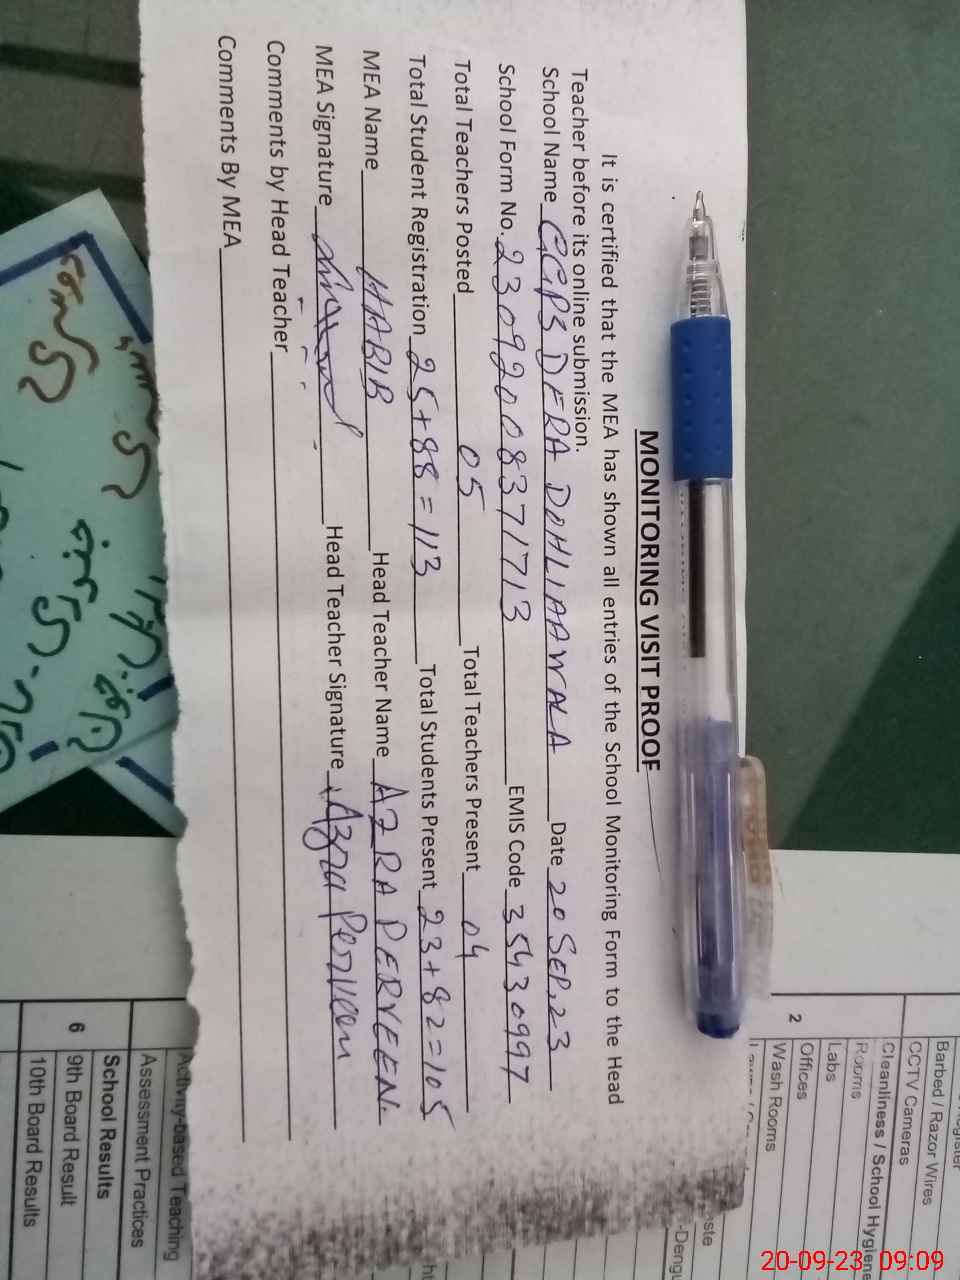 MONITORING VISIT PROOF
It is certified that the MEA has shown all entries of the School Monitoring Form to the Head
Teacher before its online submission.
School Name GGPS DERA DOHLIAAWALA Date 20 SEP, 23
School Form No. 23092008371713 EMIS Code 35430997
Total Teachers Posted 05 Total Teachers Present 04
Total Student Registration 25+88=113 Total Students Present 23+82=105
MEA Name HABIB Head Teacher Name AZRA PERVEEN.
MEA Signature Head Teacher Signature Azra Perveen
Comments by Head Teacher
Comments By MEA
Barbed / Razor Wires
CCTV Cameras
Cleanliness / School Hygiene
Rooms
Labs
Offices
2
Wash Rooms
Activity-based Teaching
Assessment Practices
School Results
6
9th Board Result
10th Board Results
20-09-23 09:09